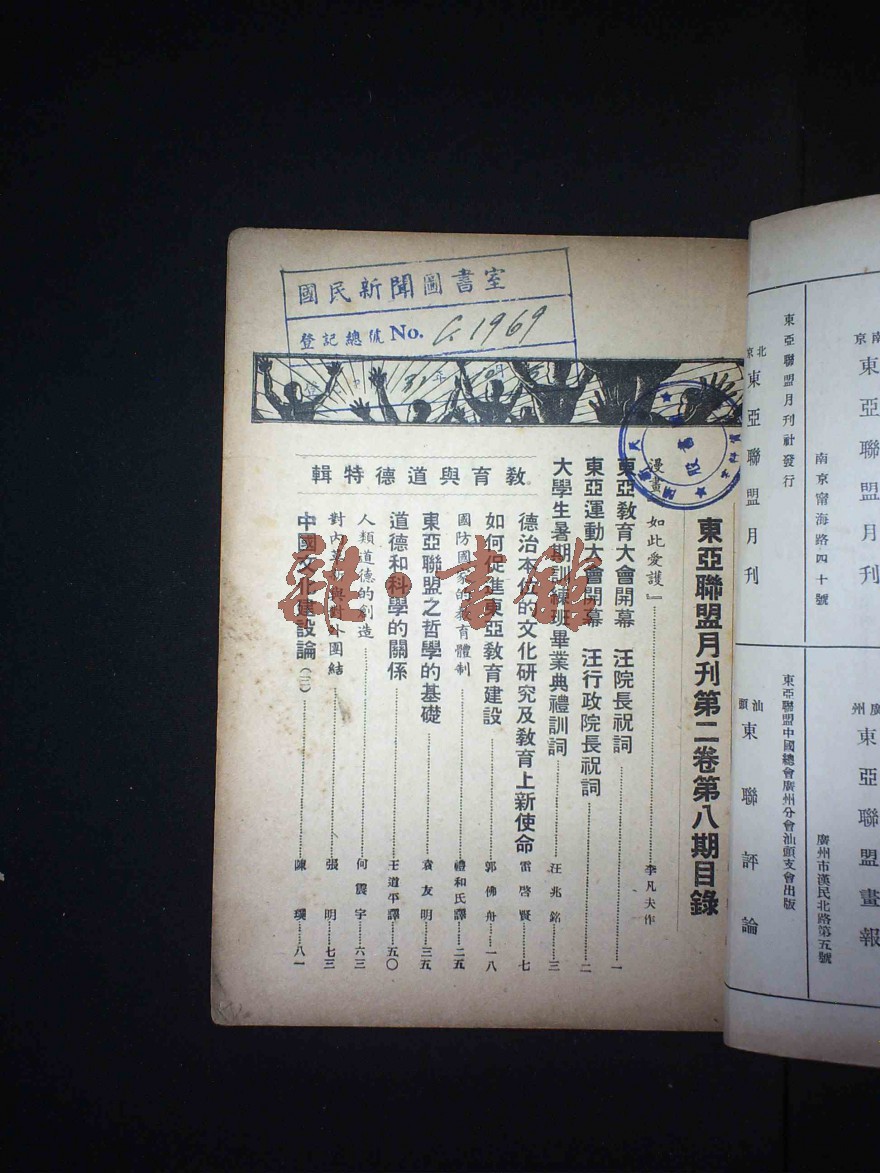 國民新聞圖書室
登記總號 No. G 1969
東亞聯盟月刊第二卷第八期目錄
漫畫『如此愛護』……李凡夫作
東亞教育大會開幕 汪院長祝詞……一
東亞運動大會開幕 汪行政院長祝詞……二
大學生暑期訓練班畢業典禮訓詞……汪兆銘……三
教育與道德特輯
德治本位的文化研究及教育上新使命 雷啓賢……七
如何促進東亞教育建設……郭佛舟……一八
國防國家的教育體制……禮和氏譯……二五
東亞聯盟之哲學的基礎……袁友明……三五
道德和科學的關係……王道平譯……五〇
人類道德的創造……何震宇……六三
對內革新與對外團結……張明……七三
中國文化建設論(二)……陳璞……八一
雜·書館
南京
東亞聯盟月刊
南京甯海路四十號
廣州
東亞聯盟畫報
廣州市漢民北路第五號
北京
東亞聯盟月刊
東亞聯盟月刊社發行
汕頭
東聯評論
東亞聯盟中國總會廣州分會汕頭支會出版